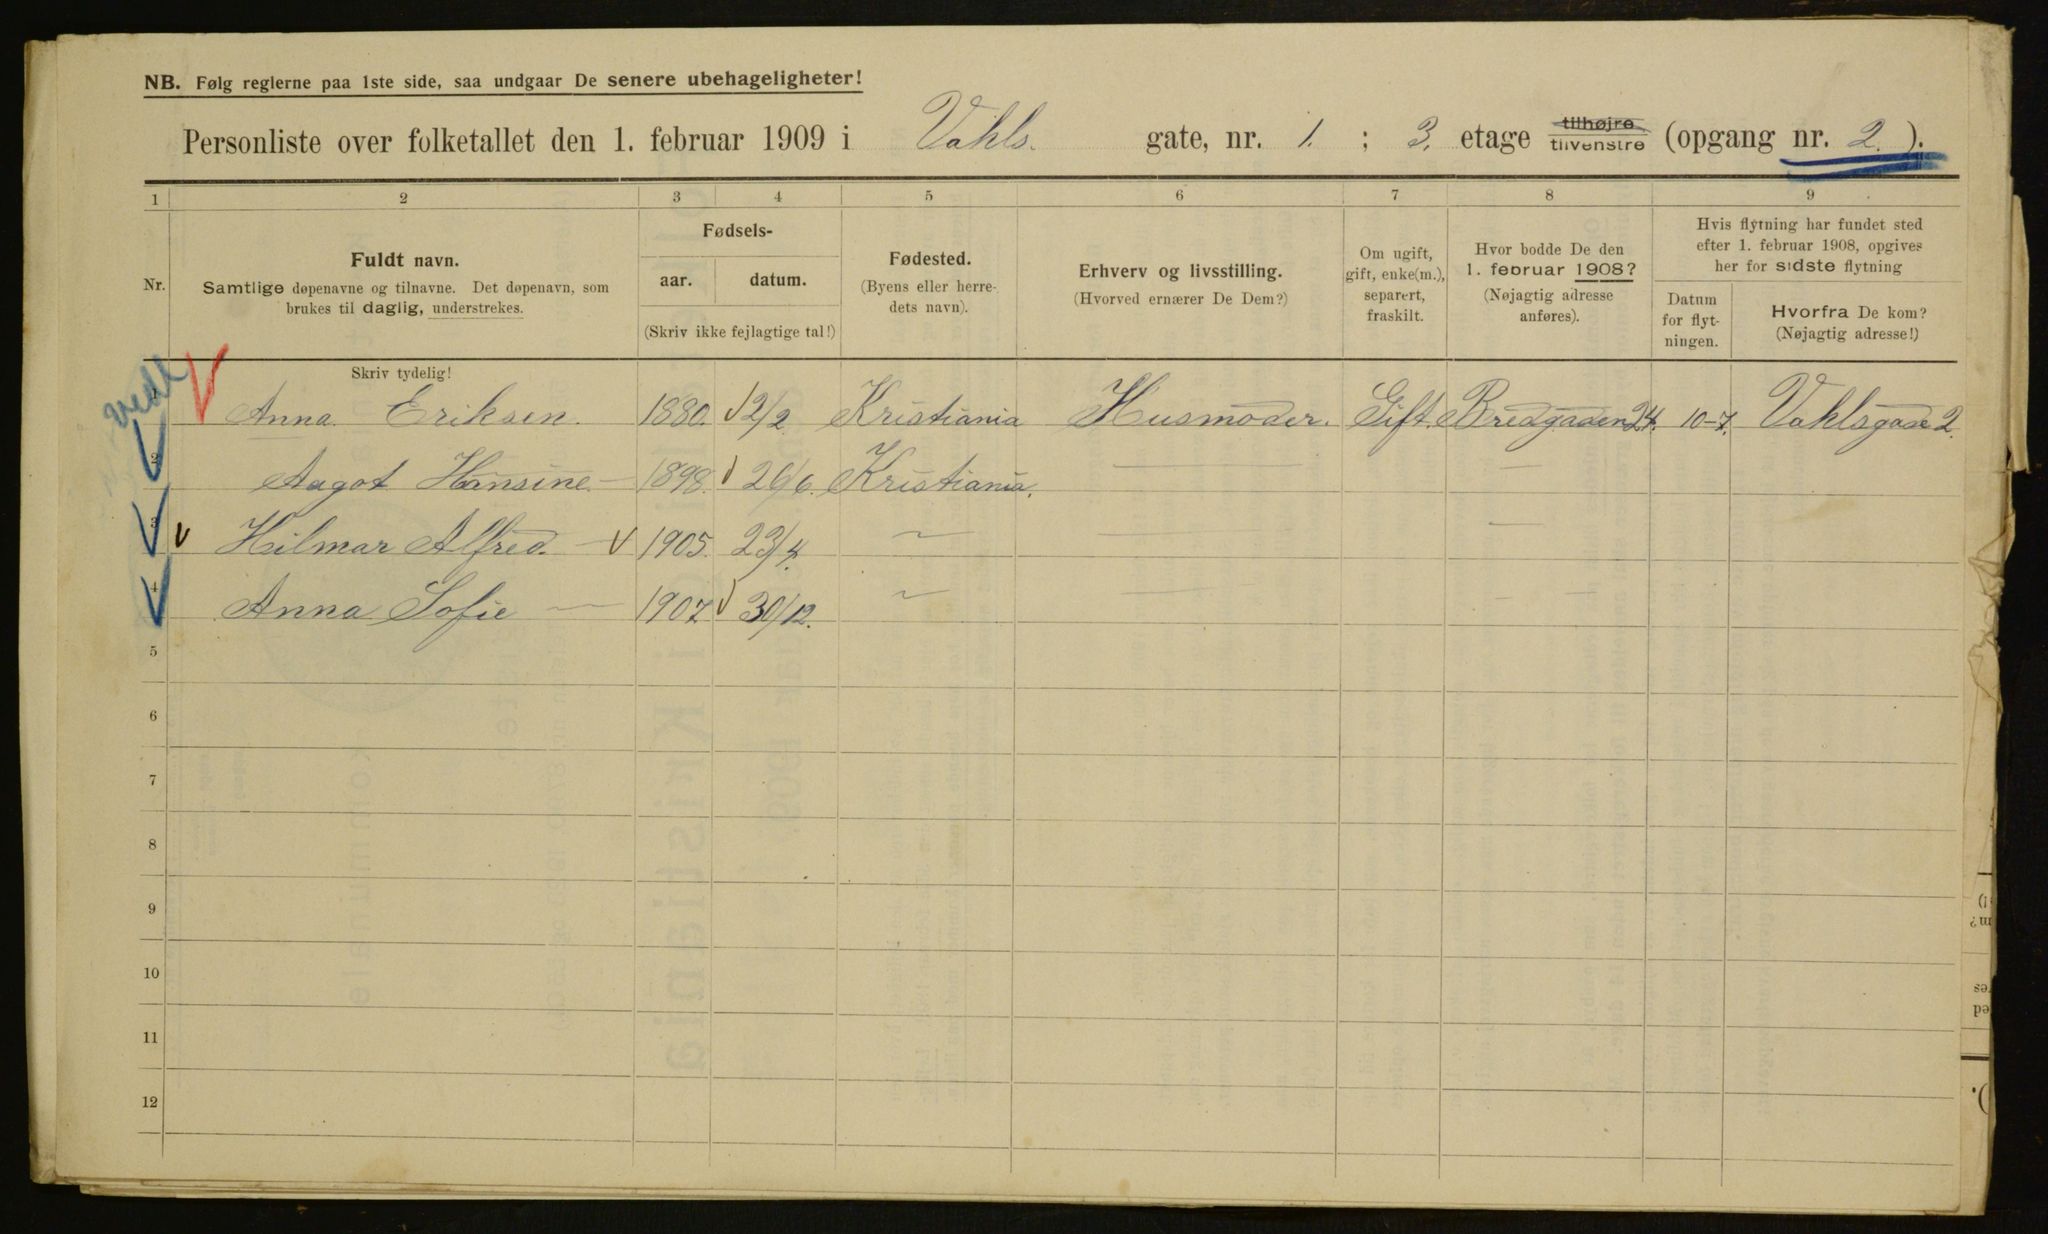 NB. Følg reglerne paa 1ste side, saa undgaar De senere ubehageligheter!
Personliste over folketallet den 1. februar 1909 i Vahls. gate, nr. 1. ; 3. etage tilhøjre tilvenstre (opgang nr. 2. ).
1 2 3 4 5 6 7 8 9
Nr.
Fuldt navn.
Samtlige døpenavne og tilnavne. Det døpenavn, som
brukes til daglig, understrekes.
Fødsels-
aar. datum.
(Skriv ikke fejlagtige tal!)
Fødested.
(Byens eller herre-
dets navn).
Erhverv og livsstilling.
(Hvorved ernærer De Dem?)
Om ugift,
gift, enke(m.),
separert,
fraskilt.
Hvor bodde De den
1. februar 1908?
(Nøjagtig adresse
anføres).
Hvis flytning har fundet sted
efter 1. februar 1908, opgives
her for sidste flytning
Datum
for flyt-
ningen.
Hvorfra De kom?
(Nøjagtig adresse!)
Skriv tydelig!
1 Anna Eriksen. 1880. 12/2 Kristiania Husmoder. Gift. Bredgaden 24. 10-7. Vahlsgade 2.
2 Aagot Hansine — 1898. 26/6. Kristiania. — —
3 Hilmar Alfred. — 1905. 23/4. — — —
4 Anna Sofie — 1907 30/12. — — —
5
6
7
8
9
10
11
12